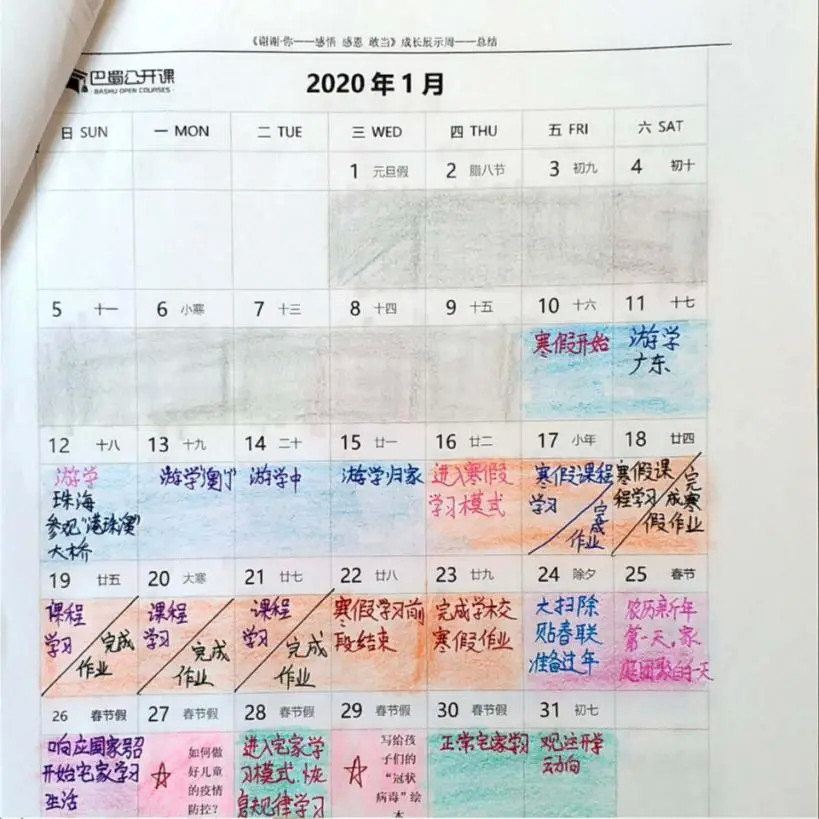 《谢谢·你——感悟 感恩 敢当》成长展示周——总结
巴蜀公开课
BASHU OPEN COURSES
2020年1月
日 SUN 一 MON 二 TUE 三 WED 四 THU 五 FRI 六 SAT
1 元旦假 2 腊八节 3 初九 4 初十
5 十一 6 小寒 7 十三 8 十四 9 十五 10 十六 11 十七
寒假开始
游学
广东
12 十八 13 十九 14 二十 15 廿一 16 廿二 17 小年 18 廿四
游学
珠海
参观"港珠澳"
大桥
游学"澳门"
游学中
游学归家
进入寒假
学习模式
寒假课程
学习
完成
作业
寒假课
程学习
完
成寒
假作业
19 廿五 20 大寒 21 廿七 22 廿八 23 廿九 24 除夕 25 春节
课程
学习
完成
作业
课程
学习
完成
作业
课程
学习
完成
作业
寒假学习前
段结束
完成学校
寒假作业
大扫除
贴春联
准备过年
农历新年
第一天,家
庭团聚的一天
26 春节假 27 春节假 28 春节假 29 春节假 30 春节假 31 初七
响应国家号召
开始宅家学习
生活
如何做
好儿童
的疫情
防控?
进入宅家学
习模式.恢
复规律学习
写给孩
子们的
"冠状
病毒"绘
本
正常宅家学习
观注开学
动向